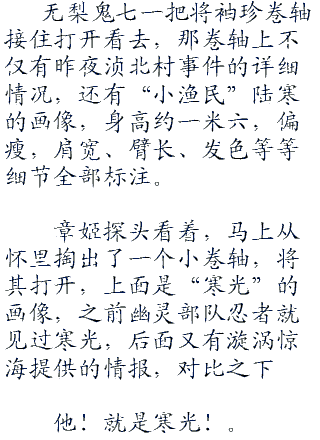 无梨鬼七一把将袖珍卷轴
接住打开看去，那卷轴上不
仅有昨夜浈北村事件的详细
情况，还有“小渔民”陆寒
的画像，身高约一米六，偏
瘦，肩宽、臂长、发色等等
细节全部标注。
章姬探头看着，马上从
怀里掏出了一个小卷轴，将
其打开，上面是“寒光”的
画像，之前幽灵部队忍者就
见过寒光，后面又有漩涡惊
海提供的情报，对比之下
他！就是寒光！。